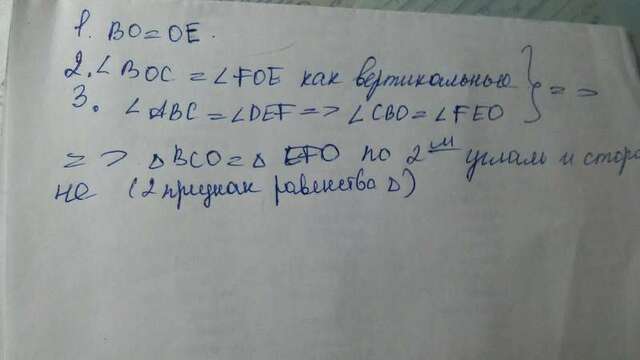 1. BO = OE.
2. ∠BOC = ∠FOE как вертикальные
3. ∠ABC = ∠DEF => ∠CBO = ∠FEO } =>
=> △BCO = △ EFO по 2м углам и сторо
не (2 признак равенства △)